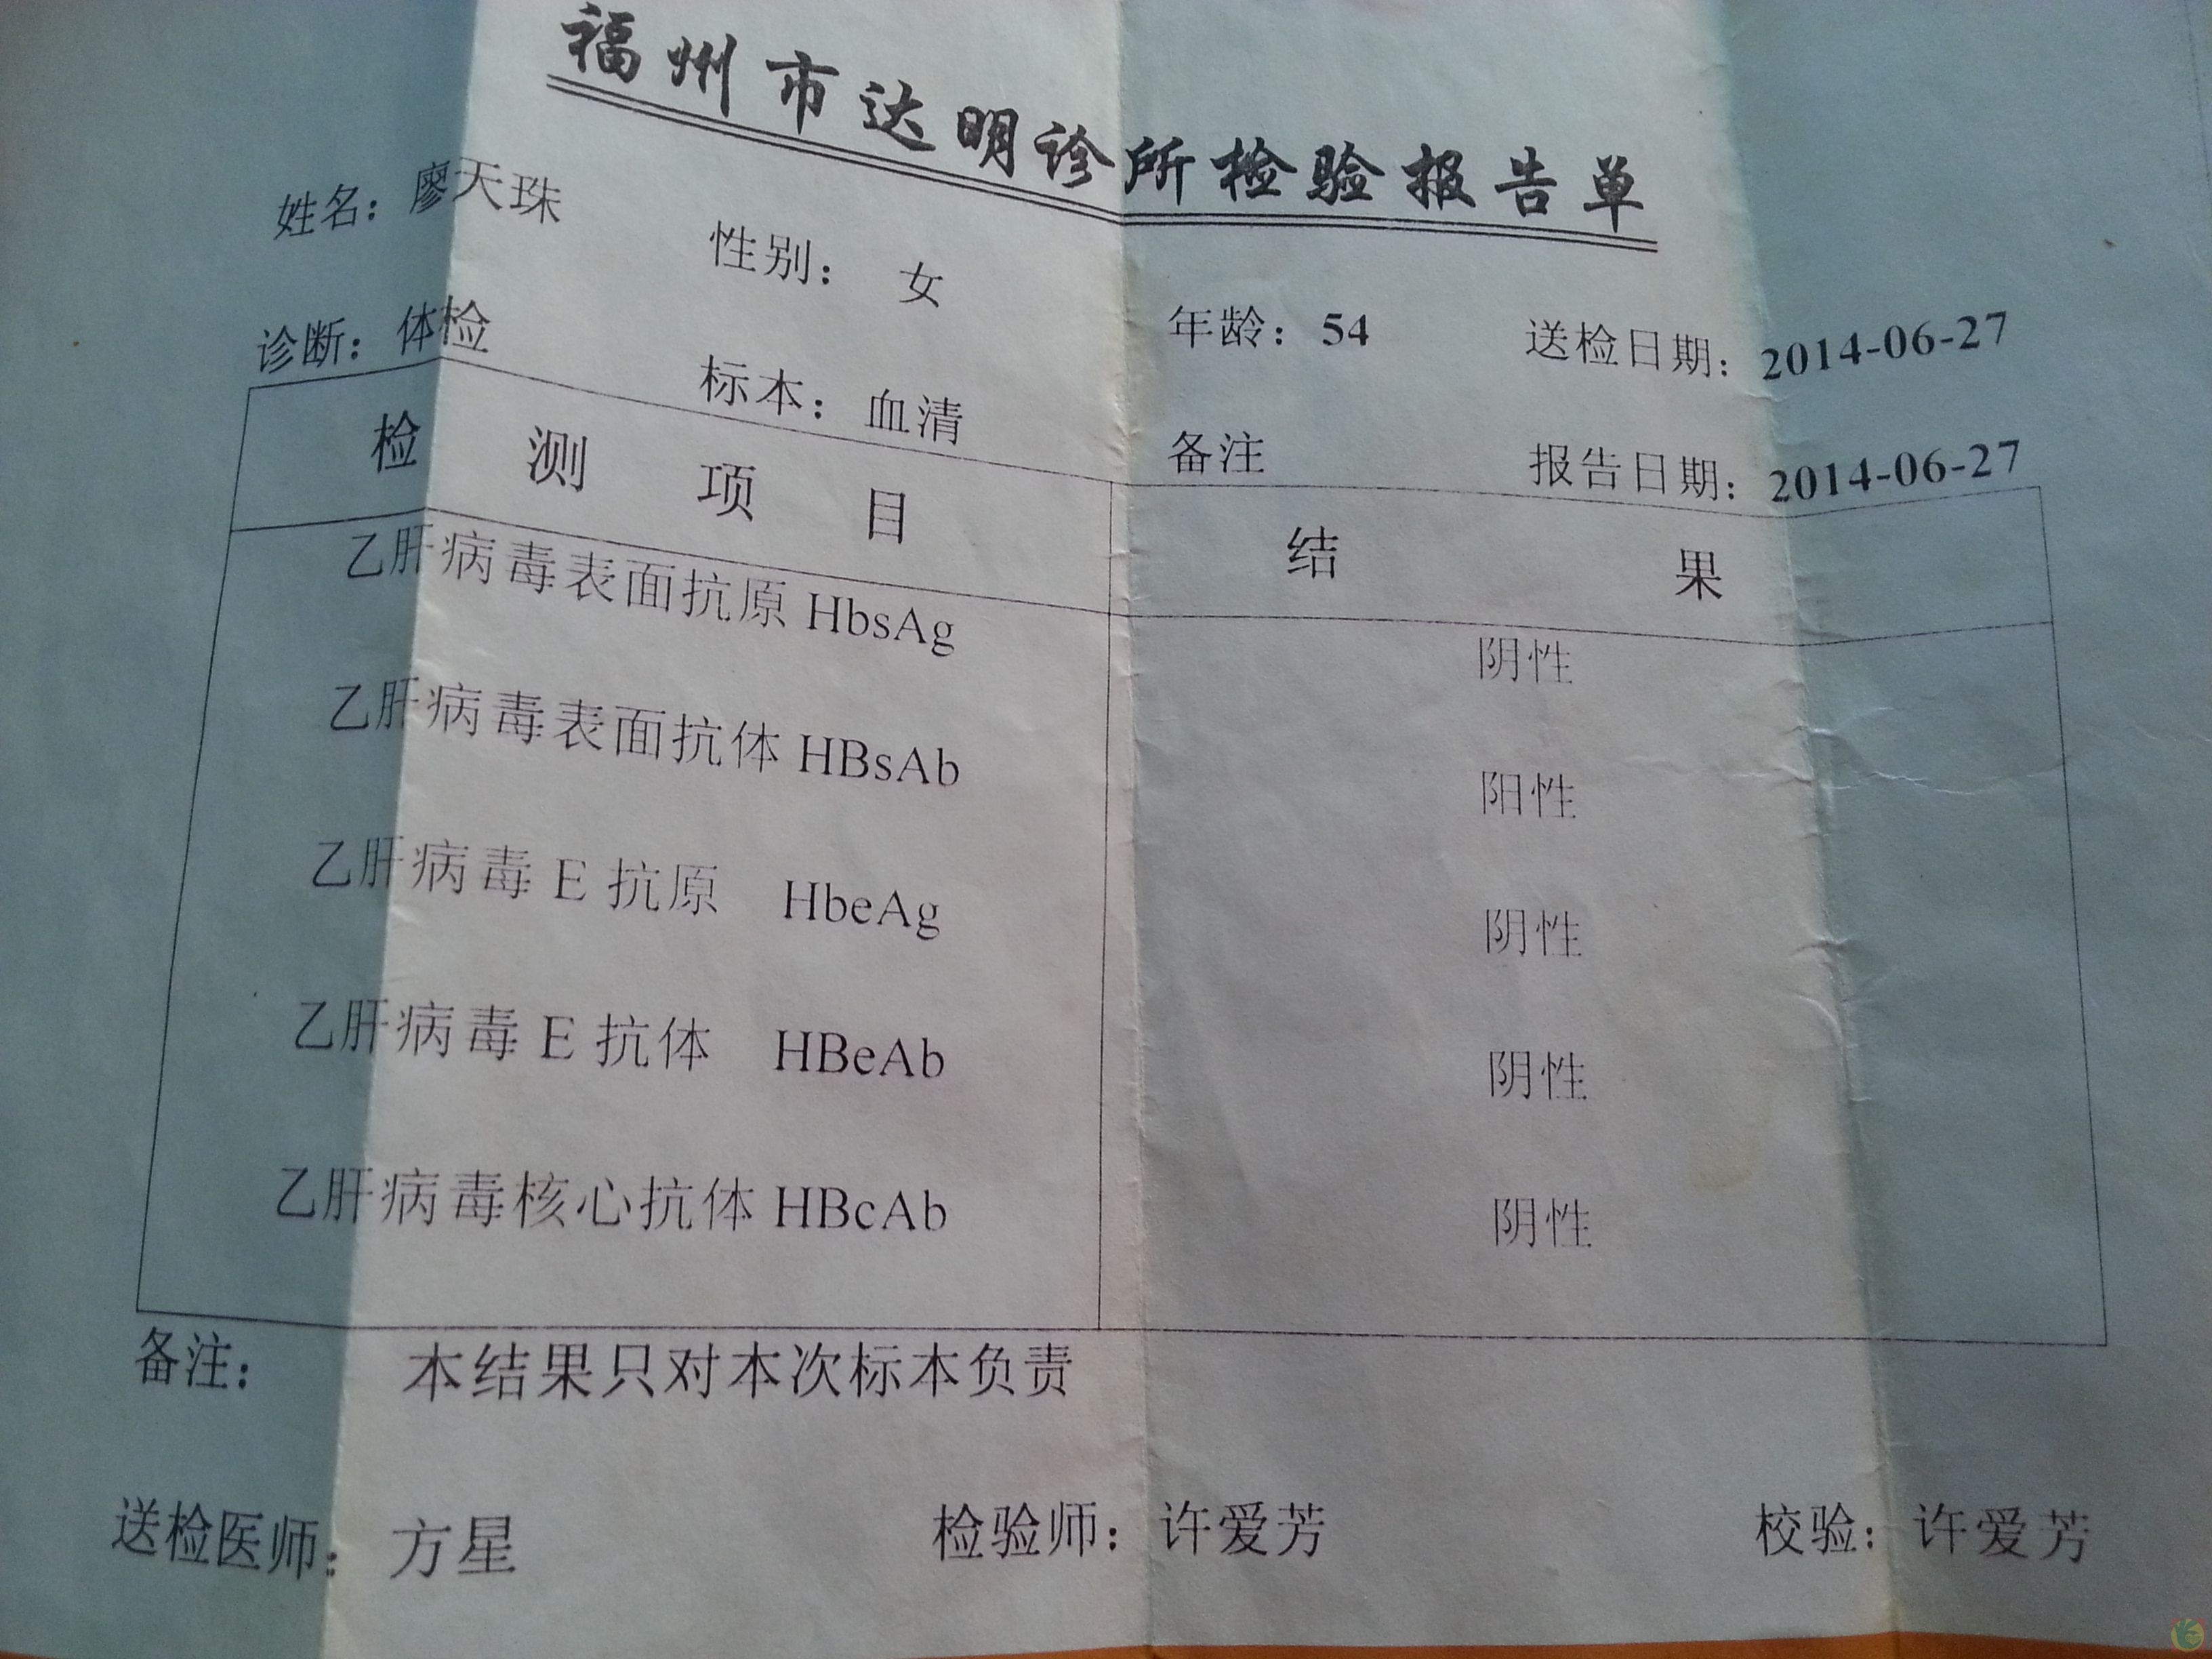 福州市达明诊所检验报告单
姓名：廖天珠 性别： 女 年龄：54 送检日期：2014-06-27
诊断：体检 标本：血清 备注 报告日期：2014-06-27
检 测 项 目 结 果
乙肝病毒表面抗原 HbsAg 阴性
乙肝病毒表面抗体 HBsAb 阳性
乙肝病毒 E 抗原 HbeAg 阴性
乙肝病毒 E 抗体 HBeAb 阴性
乙肝病毒核心抗体 HBcAb 阴性
备注： 本结果只对本次标本负责
送检医师：方星 检验师：许爱芳 校验：许爱芳